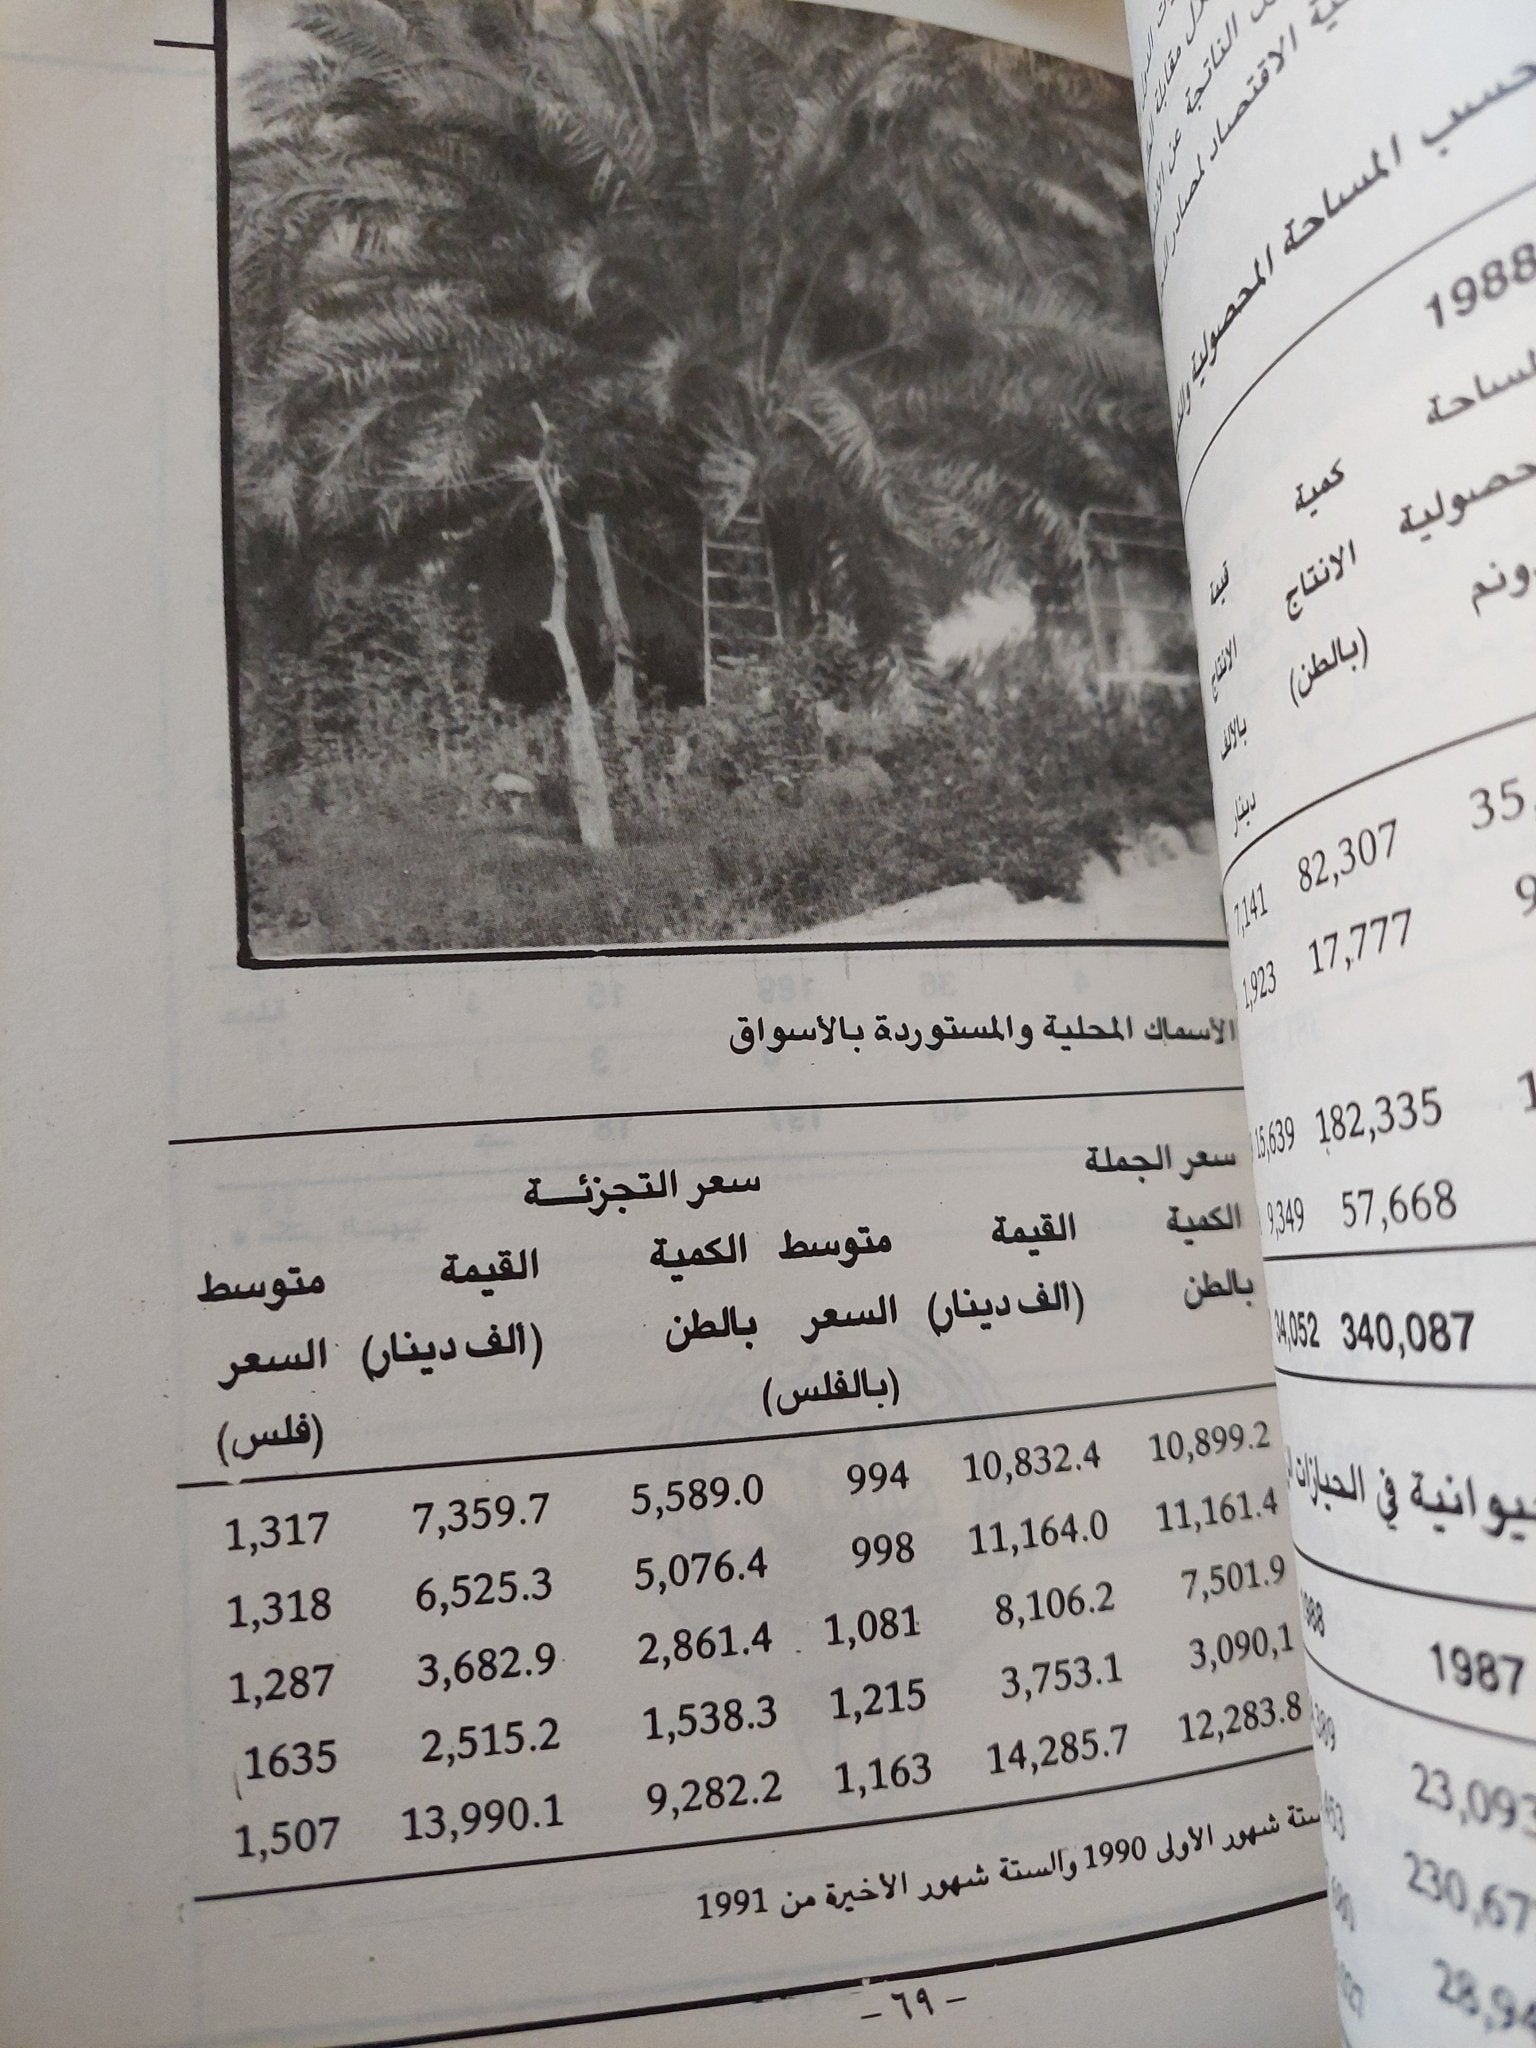 الأسماك المحلية والمستوردة بالأسواق
سعر الجملة سعر التجزئة
الكمية القيمة متوسط الكمية القيمة متوسط
بالطن (ألف دينار) السعر بالطن (ألف دينار) السعر
(بالفلس) (فلس)
10,899.2 10,832.4 994 5,589.0 7,359.7 1,317
11,161.4 11,164.0 998 5,076.4 6,525.3 1,318
7,501.9 8,106.2 1,081 2,861.4 3,682.9 1,287
3,090,1 3,753.1 1,215 1,538.3 2,515.2 1635
12,283.8 14,285.7 1,163 9,282.2 13,990.1 1,507
ستة شهور الأولى 1990 والستة شهور الأخيرة من 1991
- ٦٩ -
حسب المساحة المحصولية
1988
كمية قيمة
الانتاج الانتاج
(بالطن) بالألف
دينار
82,307 7,141
17,777 1,923
182,335 15,639
57,668 9,349
340,087 34,052
في الحيازات
1987